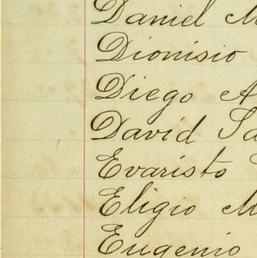 Daniel M
Dionisio
Diego A
David Sa
Evaristo
Eligio M
Eugenio